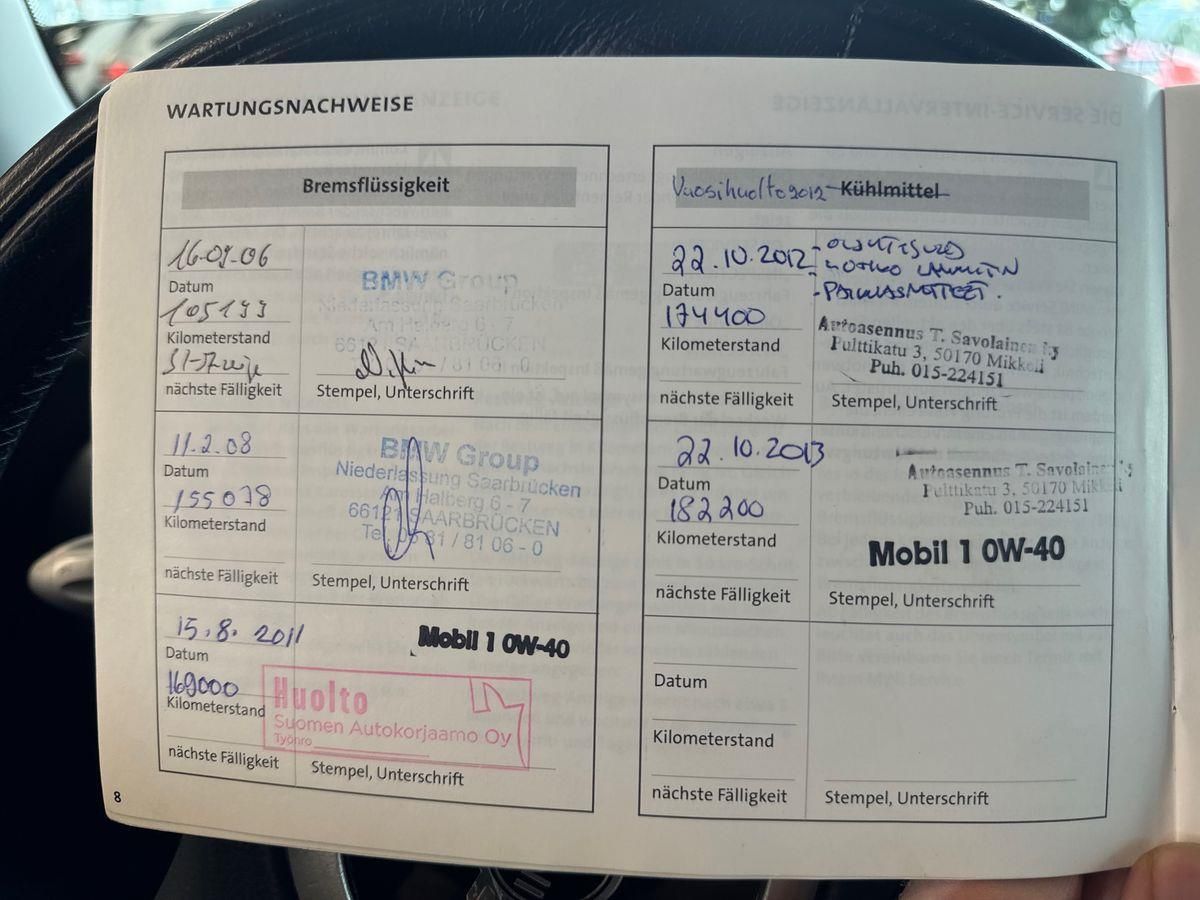 WARTUNGSNACHWEISE
Bremsflüssigkeit
16.01.06
Datum
105133
Kilometerstand
nächste Fälligkeit
BMW Group
Niederlassung Saarbrücken
Am Halberg 6 - 7
66121 SAARBRÜCKEN
/ 81 06 - 0
Stempel, Unterschrift
11.2.08
Datum
155078
Kilometerstand
nächste Fälligkeit
BMW Group
Niederlassung Saarbrücken
Am Halberg 6 - 7
66121 SAARBRÜCKEN
Tel. 06 81 / 81 06 - 0
Stempel, Unterschrift
15.8. 2011
Datum
169000
Kilometerstand
nächste Fälligkeit
Mobil 1 0W-40
Huolto
Suomen Autokorjaamo Oy
Työnro
Stempel, Unterschrift
8
Vuosihuolto 2012 Kühlmittel
22.10.2012
Datum
174400
Kilometerstand
nächste Fälligkeit
Autoasennus T. Savolainen
Pulttikatu 3, 50170 Mikkeli
Puh. 015-224151
Stempel, Unterschrift
22.10.2013
Datum
182200
Kilometerstand
nächste Fälligkeit
Autoasennus T. Savolainen
Pulttikatu 3, 50170 Mikkeli
Puh. 015-224151
Mobil 1 0W-40
Stempel, Unterschrift
Datum
Kilometerstand
nächste Fälligkeit
Stempel, Unterschrift